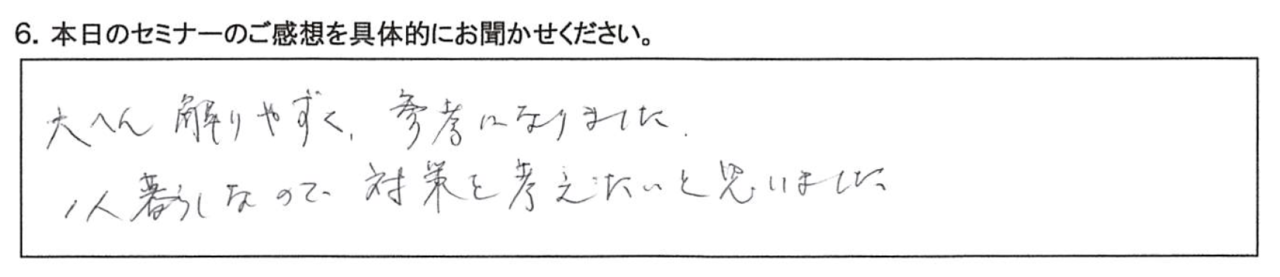 6. 本日のセミナーのご感想を具体的にお聞かせください。
大へん解りやすく、参考になりました.
1人暮らしなので、対策を考えたいと思いました。